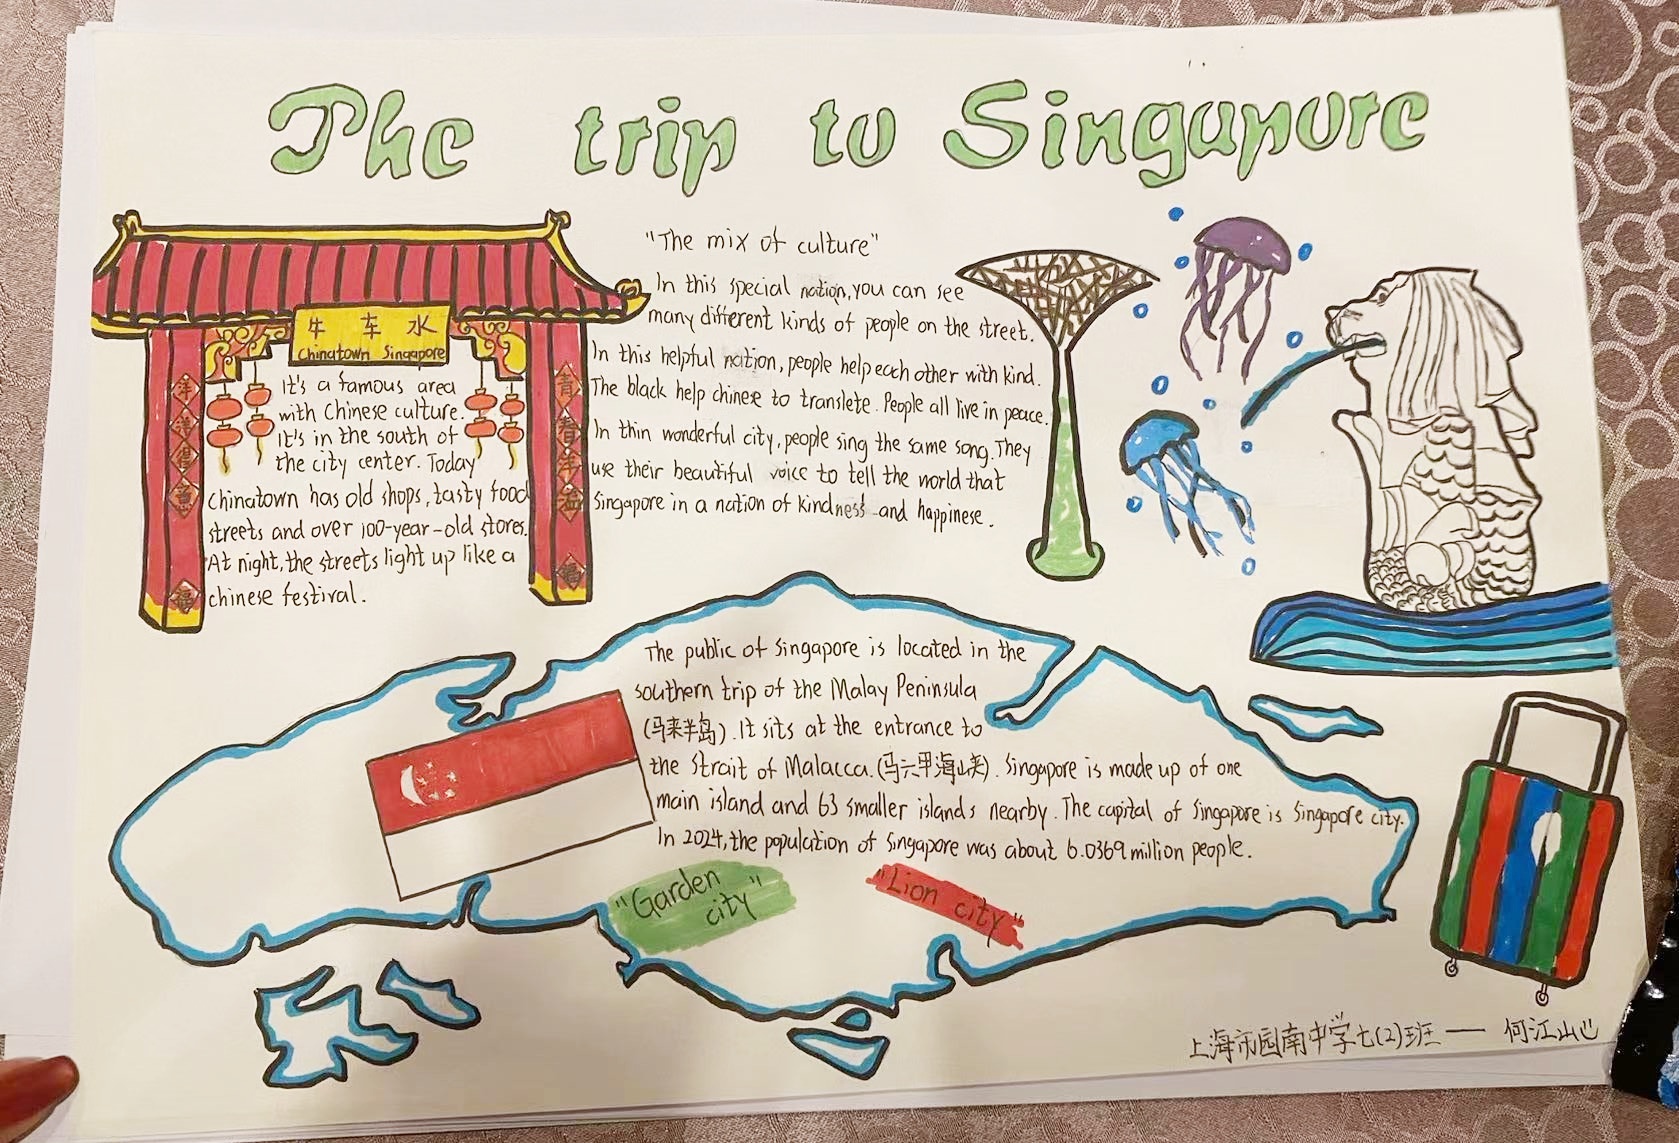 The trip to Singapore
牛车水
Chinatown Singapore
It's a famous area
with Chinese culture.
It's in the south of
the city center. Today
Chinatown has old shops, tasty food
streets and over 100-year-old stores.
At night, the streets light up like a
chinese festival.
洋
洋
得
意
福
青
春
洋
溢
福
"The mix of culture"
In this special nation, you can see
many different kinds of people on the street.
In this helpful nation, people help each other with kind.
The black help chinese to translete. People all live in peace.
In thin wonderful city, people sing the same song. They
use their beautiful voice to tell the world that
Singapore in a nation of kindness and happinese.
The public of Singapore is located in the
southern trip of the Malay Peninsula
(马来半岛). It sits at the entrance to
the Strait of Malacca. (马六甲海峡). Singapore is made up of one
main island and 63 smaller islands nearby. The capital of Singapore is Singapore city.
In 2024, the population of Singapore was about 6.0369 million people.
"Garden
city"
"Lion city"
上海市园南中学七(2)班 — 何江山心